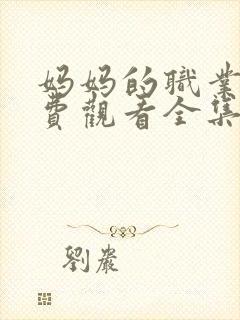 妈妈的職業
費觀看全集
劉嚴